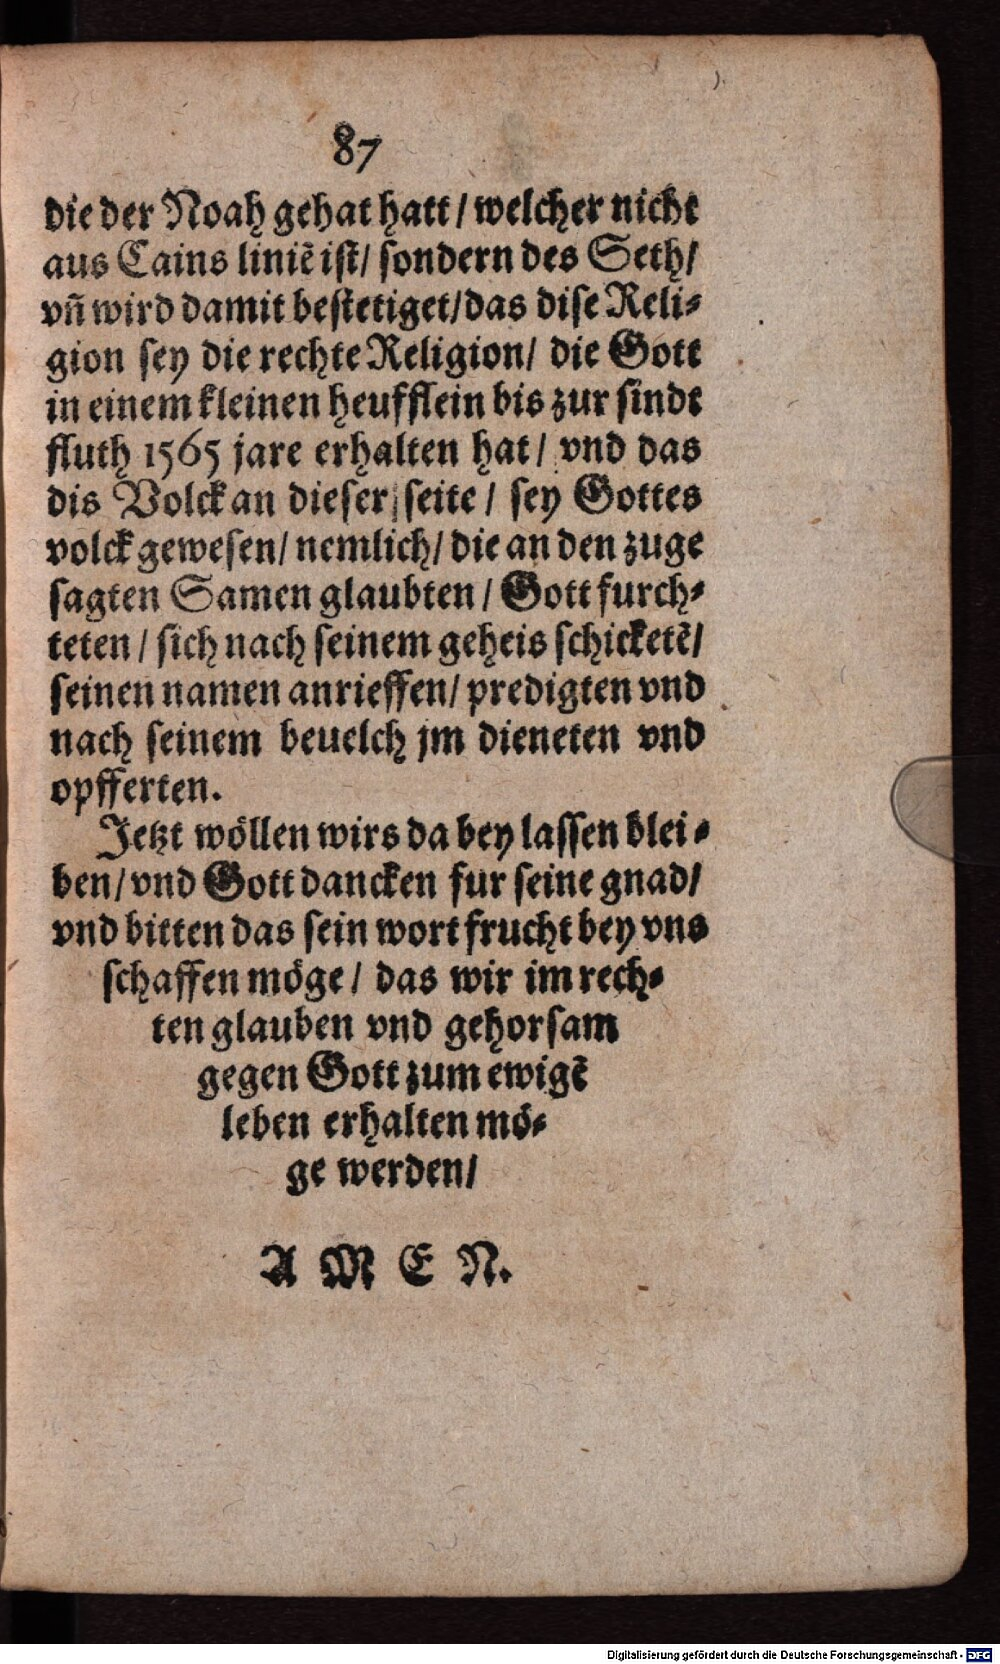 87
die der Noah gehat hatt / welcher nicht
aus Cains liniẽ ist / sondern des Seth /
vñ wird damit bestetiget / das dise Reli-
gion sey die rechte Religion / die Gott
in einem kleinen heufflein bis zur sindt
fluth 1565 jare erhalten hat / vnd das
dis Volck an dieser seite / sey Gottes
volck gewesen / nemlich / die an den zuge
sagten Samen glaubten / Gott furch-
teten / sich nach seinem geheis schicketẽ /
seinen namen anrieffen / predigten vnd
nach seinem beuelch jm dieneten vnd
opfferten.
Jetzt wöllen wirs da bey lassen blei-
ben / vnd Gott dancken fur seine gnad /
vnd bitten das sein wort frucht bey vns
schaffen möge / das wir im rech-
ten glauben vnd gehorsam
gegen Gott zum ewigẽ
leben erhalten mö-
ge werden /
A M E N.
Digitalisierung gefördert durch die Deutsche Forschungsgemeinschaft - DFG